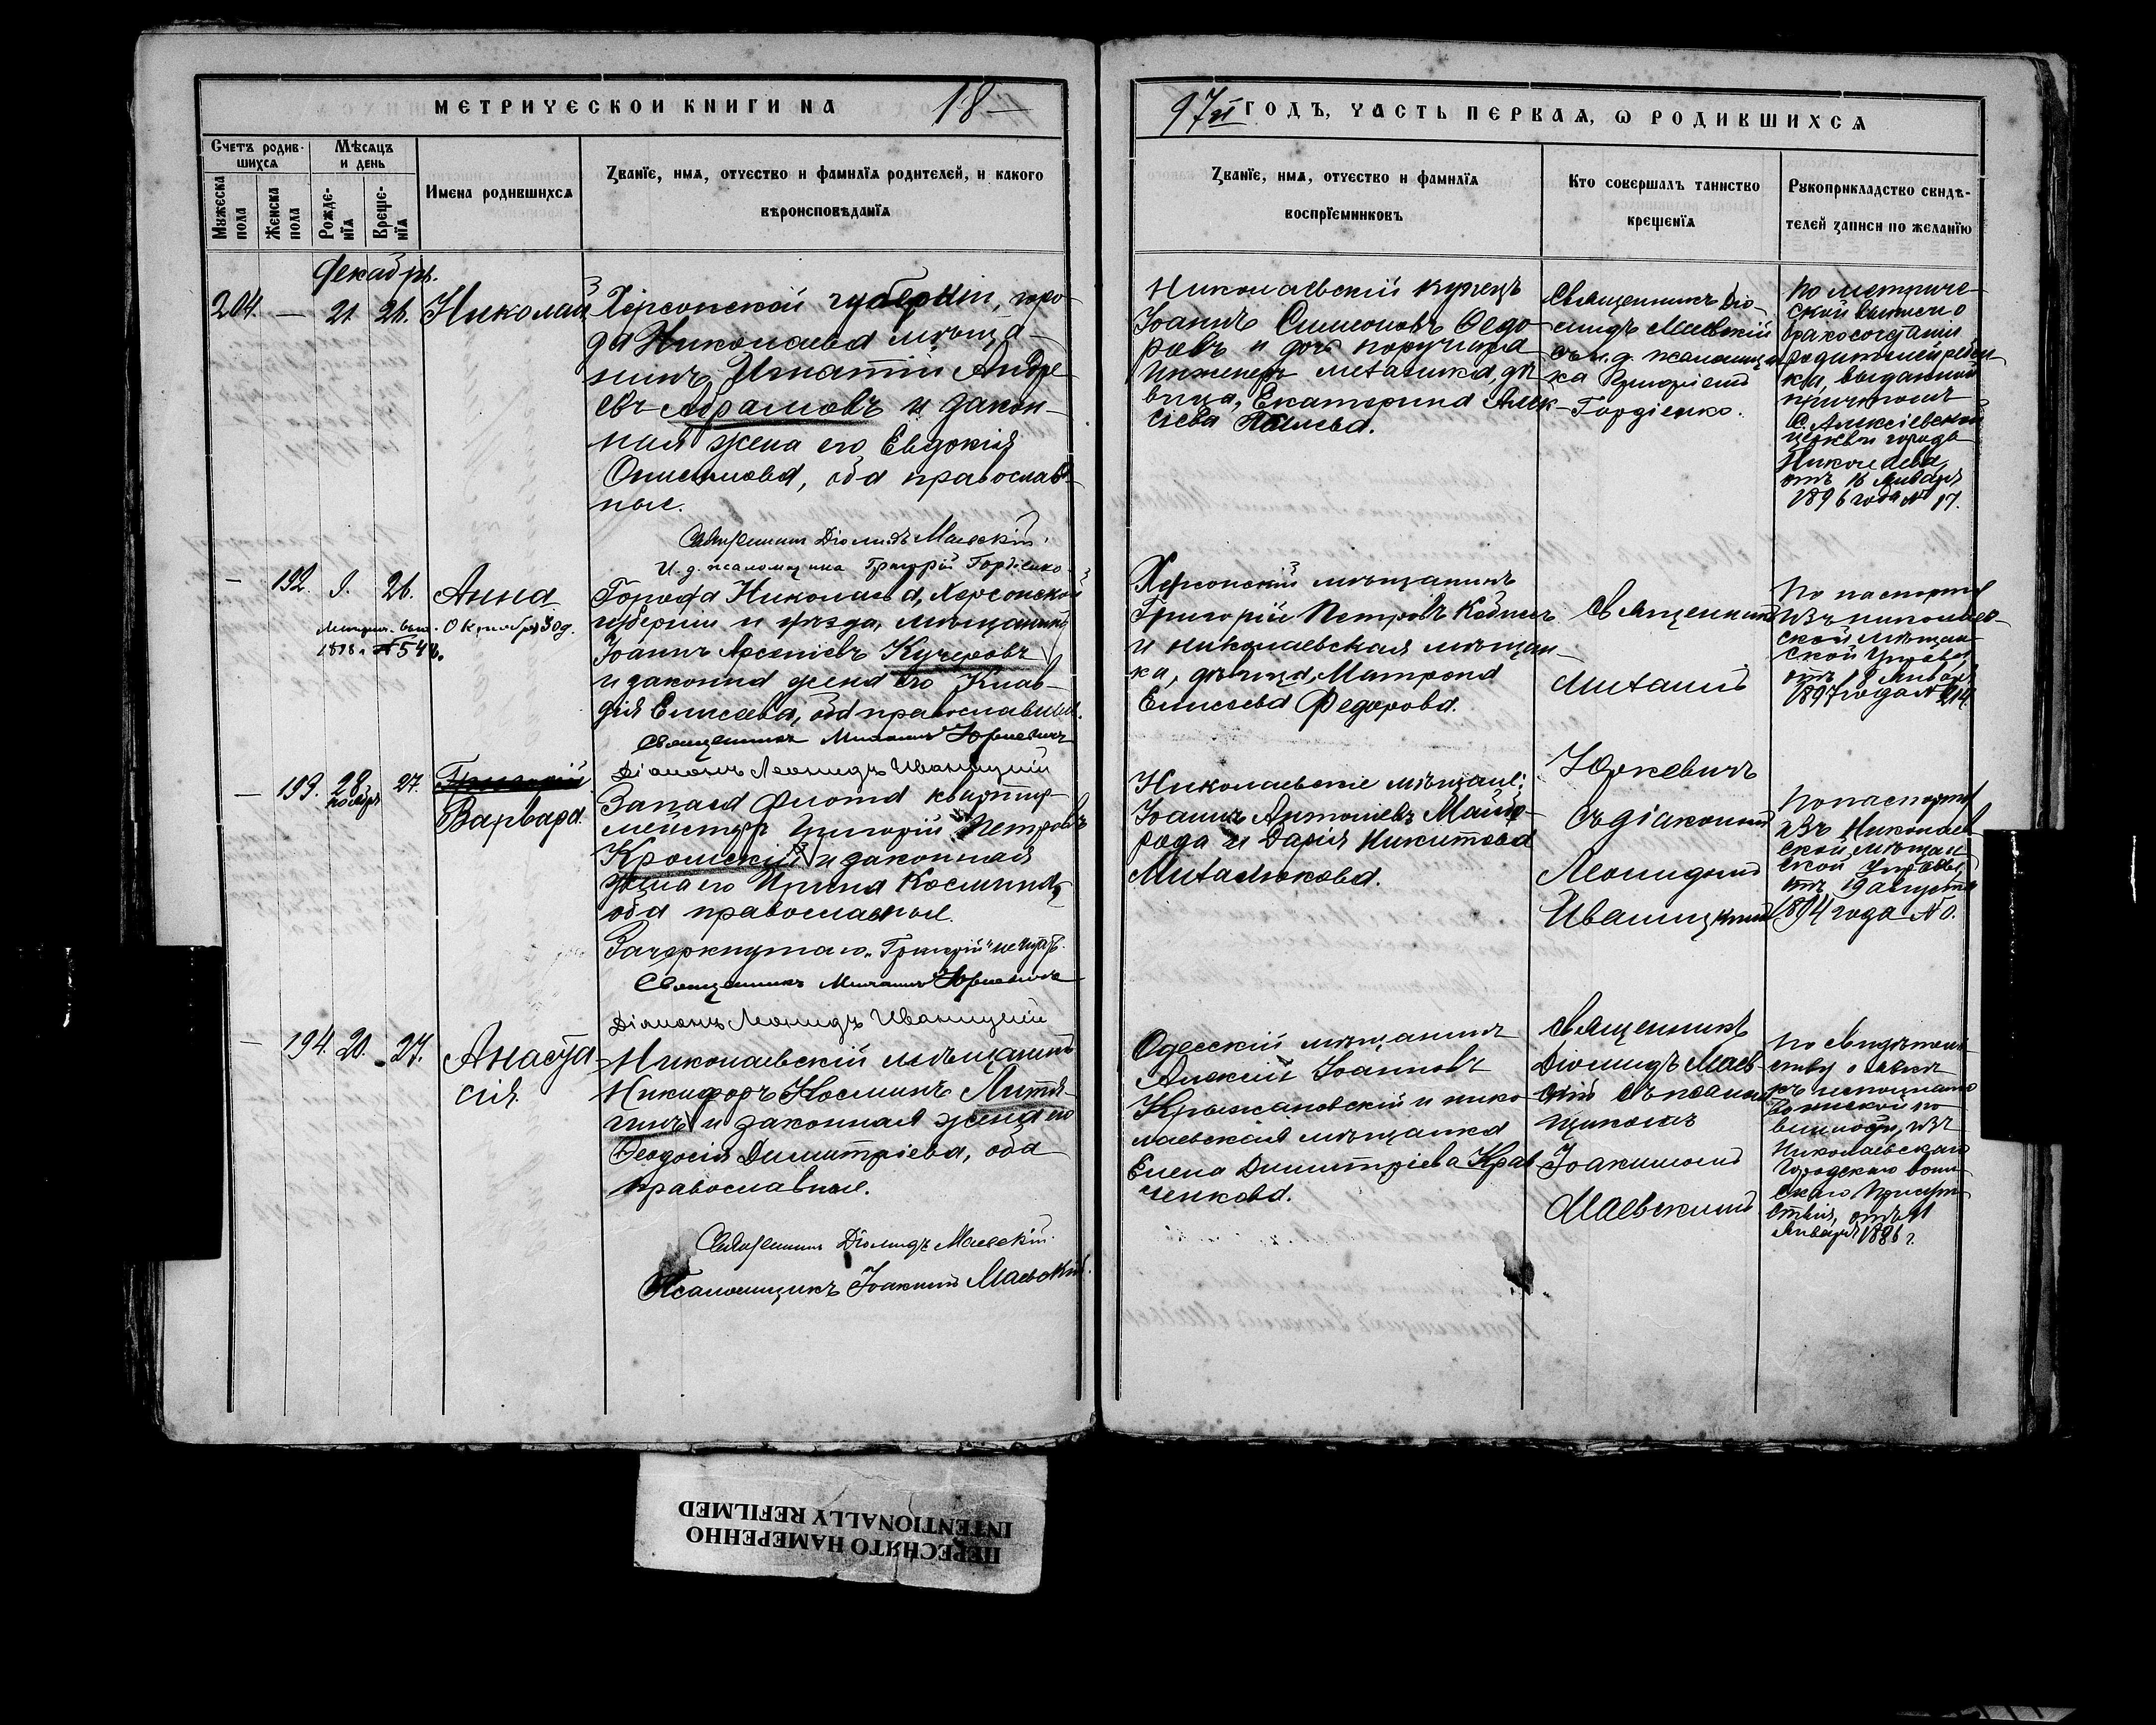 МЕТРИЧЕСКОЙ КНИГИ НА 18
97й ГОДЪ, ЧАСТЬ ПЕРВАЯ, Ѡ РОДИВШИХСЯ
Счетъ родив-
шихся
Мѣсяцъ
и день
Мꙋжеска
пола
Женска
пола
Рожде-
нїя
Креще-
нїя
Имена родившихся
Званїе, имя, отчество и фамилїя родителей, и какого
вѣроисповѣданїя
Званїе, имя, отчество и фамилїя
воспрїемниковъ
Кто совершалъ таинство
крещенїя
Рꙋкоприкладство свидѣ-
телей записи по желанїю
Декабрь.
204. — 21. 26. Николай
Херсонской губерніи, горо-
да Николаева мѣща-
нинъ Игнатій Андре-
евъ Абрамовъ и закон-
ная жена его Евдокія
Онисимова, оба православ-
ные.
Священникъ Діомидъ Маевскій.
И. д. псаломщика Григорій Гордіенко.
Николаевскій купецъ
Іоаннъ Симеоновъ Ѳедо-
ровъ и дочь поручика
Инженеръ Механика, дѣ-
вица, Екатерина Алек-
сіева
Священникъ Діо-
мидъ Маевскій
съ и. д. псаломщи-
ка Григоріемъ
Гордіенко.
По метриче-
ской выписи о
бракосочетаніи
родителей ребен-
ка, выданной
причтомъ
С. Алексіевской
церкви города
Николаева,
отъ 16 Января
1896 года № 17.
— 192. 9. 26. Анна
Октября 30 д.
№ 548.
Города Николаева, Херсонской
губерніи и уѣзда, мѣщанинъ
Іоаннъ Арсеніевъ Кучеровъ
и законна жена его Клав-
дія Елисеева, оба православные.
Священникъ Михаилъ Юркевичъ
Діаконъ Леонидъ Иваницкій
Херсонскій мѣщанинъ
Григорій Петровъ
и николаевская мѣщан-
ка, дѣвица, Матрона
Елисеева Федорова.
Священникъ
Михаилъ
Юркевичъ
съ діакономъ
Леонидомъ
Иваницкимъ
По паспорту
изъ николаев-
ской мѣщан-
ской Управы,
отъ 18 Января
1897 года № 214.
— 193. 28 ноября 27. Григорій
Варвара.
Запаса флота квартир-
мейстеръ Григорій Петровъ
Кромскій и законная
жена его Ирина Космина,
оба православные.
Зачеркнутаго „Григорій" не читать.
Священникъ Михаилъ Юркевичъ
Діаконъ Леонидъ Иваницкій
Николаевскіе мѣщане:
Іоаннъ Антоніевъ Майбо-
рода и Дарія Никитова
Михалюкова.
По паспорту
изъ Николаев-
ской мѣщан-
ской Управы,
отъ 19 августа
1894 года №
— 194. 20. 27. Анаста-
сія.
Николаевскій мѣщанинъ
Никифоръ Косминъ Литя-
гинъ и законная жена его
Ѳеодосія Димитріева, оба
православные.
Священникъ Діомидъ Маевскій.
Псаломщикъ Іоакимъ Маевскій.
Одесскій мѣщанинъ
Алексій Іоанновъ
Крыжановскій и нико-
лаевская мѣщанка
Елена Димитріева Крав-
ченкова.
Священникъ
Діомидъ Маев-
скій съ псалом-
щикомъ
Іоакимомъ
Маевскимъ
По свидѣтель-
ству о явкѣ
къ исполненію
воинской по-
винности, изъ
Николаевскаго
Городскаго воин-
скаго Присут-
ствія, отъ 11
Января 1886 г.
ПЕРЕСНЯТО НАМЕРЕННО
INTENTIONALLY REFILMED